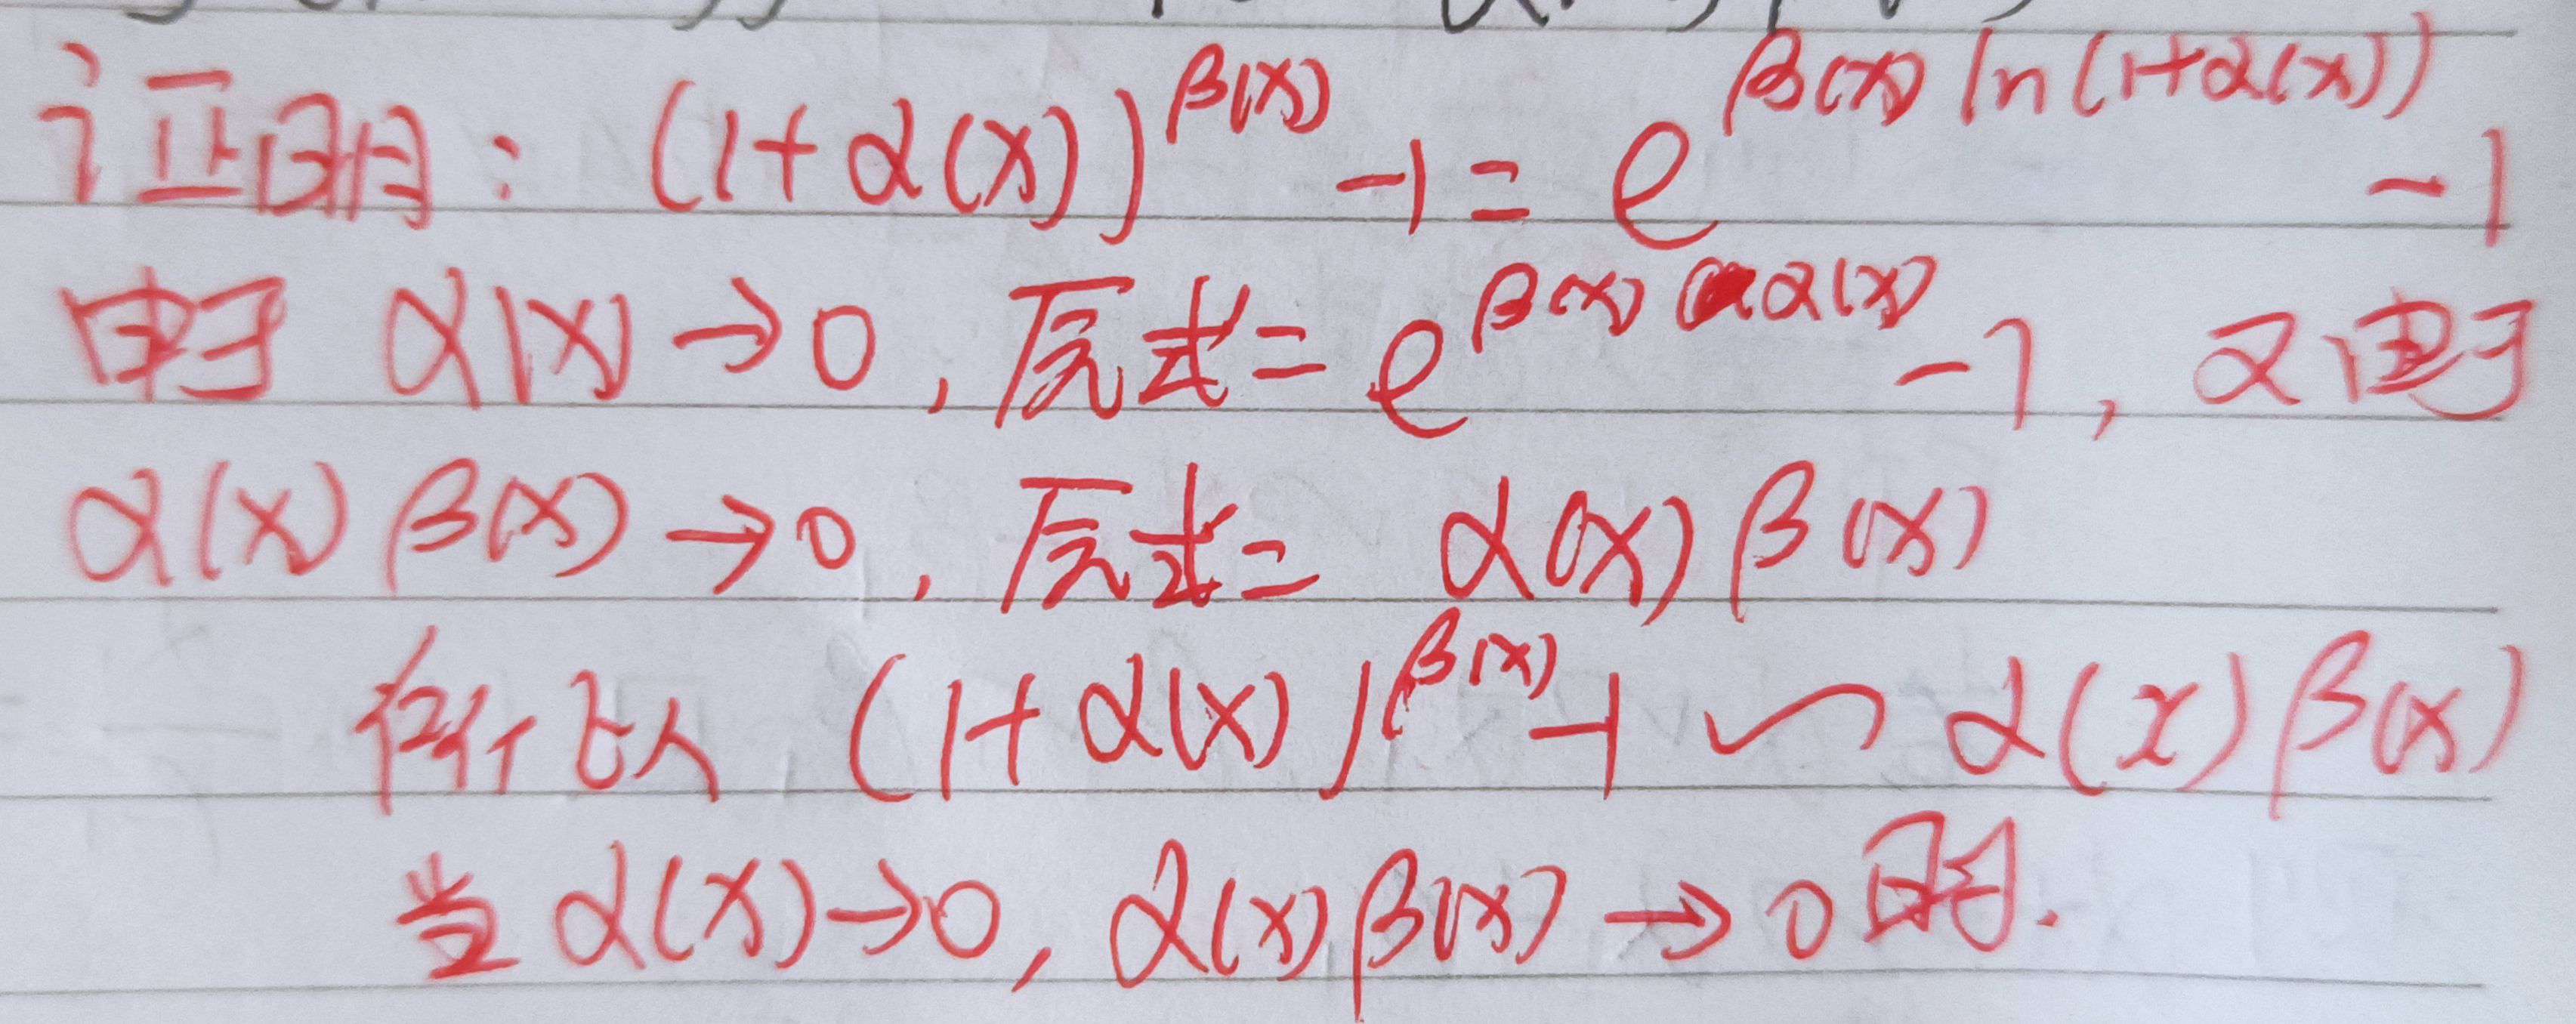 证明：(1+α(x))^β(x) -1 = e^β(x) ln(1+α(x)) -1
由于 α(x)→0, 原式= e^β(x) α(x) -1, 又由于
α(x)β(x)→0, 原式= α(x)β(x)
所以 (1+α(x))^β(x) -1 ∽ α(x)β(x)
当 α(x)→0, α(x)β(x)→0 时.